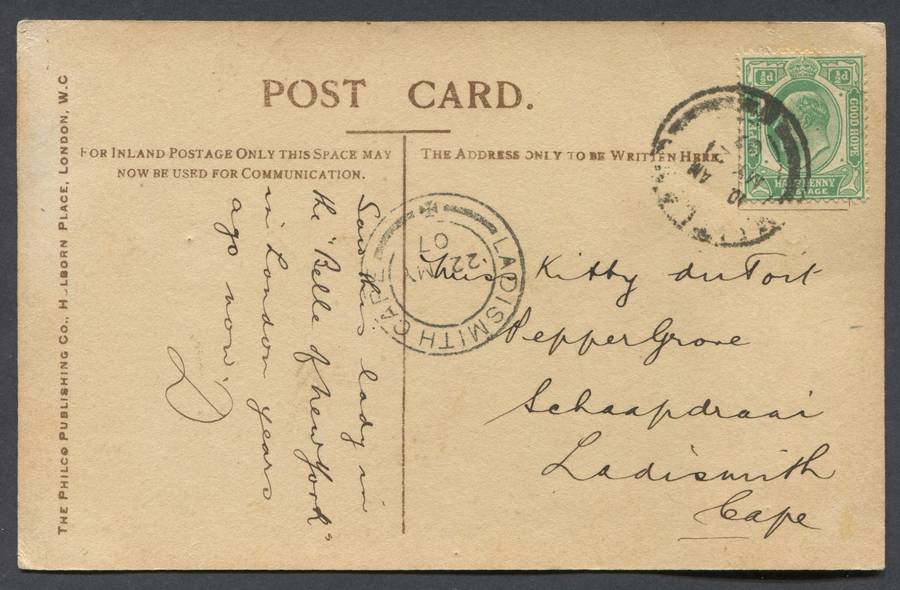 POST CARD.
FOR INLAND POSTAGE ONLY THIS SPACE MAY
NOW BE USED FOR COMMUNICATION.
THE ADDRESS ONLY TO BE WRITTEN HERE.
THE PHILCO PUBLISHING CO., HOLBORN PLACE, LONDON, W.C
Saw this lady in
the "Belle of New York"
in London years
ago now.
Miss Kitty du Toit
Pepper Grove
Schaapdraai
Ladismith
Cape
LADISMITH CAPE
22
MY
07
½d ½d
GOOD HOPE
HALF PENNY
POSTAGE
AM